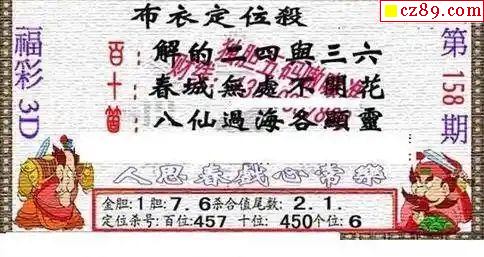 cz89.com
布衣定位殺
福彩3D
第158期
百：解的二四與三六
十：春城無處不開花
個：八仙過海各顯靈
人思春戲心常樂
金胆:1 胆:7.6 杀合值尾数: 2.1.
定位杀号:百位:457 十位: 450 个位: 6